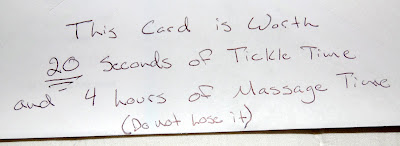 This Card is Worth
20 Seconds of Tickle Time
and 4 hours of Massage Time
(Do not lose it)